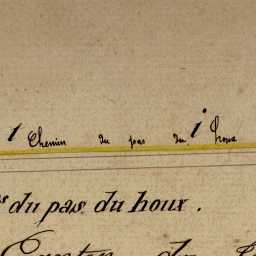 1 Chemin du pas du houx
s du pas du houx.
Canton de